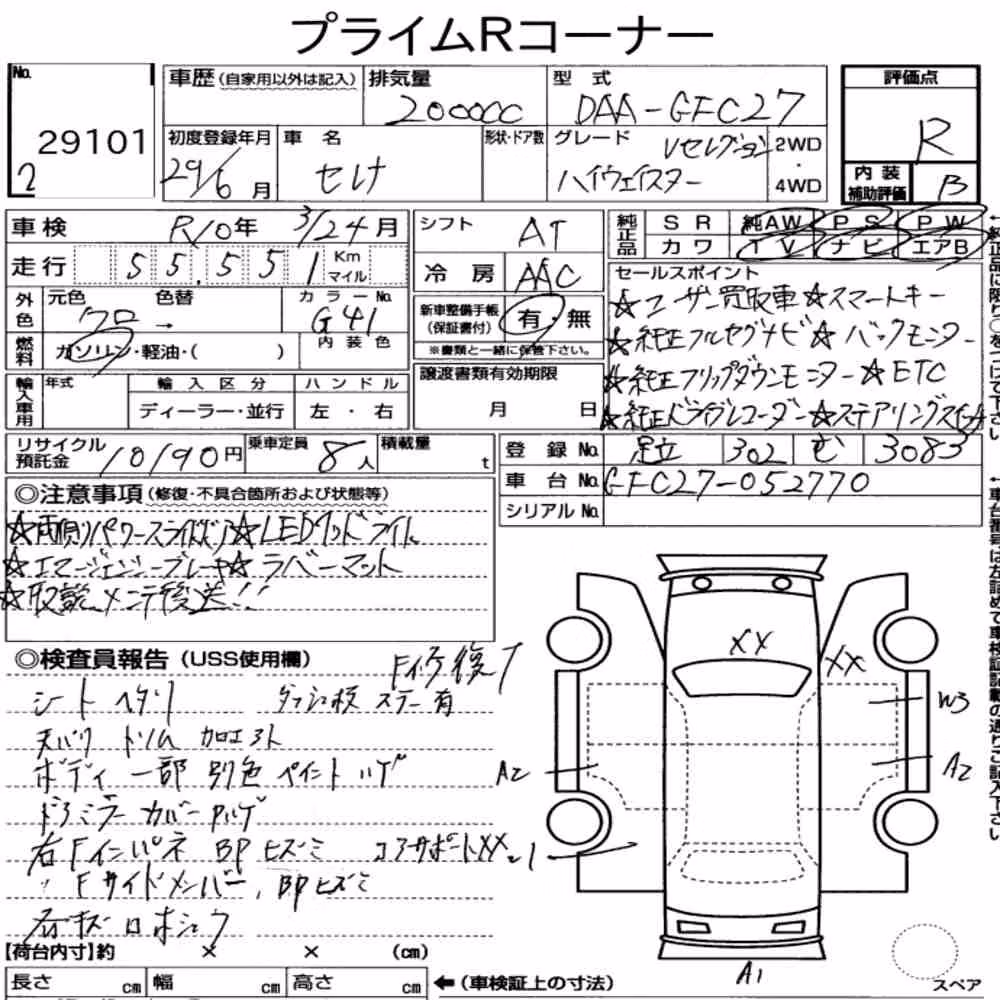 プライムRコーナー
No. 29101
2
車歴(自家用以外は記入)
排気量 2000cc
型式 DAA-GFC27
評価点 R
初度登録年月 29/6月
車名 セレナ
形状・ドア数
グレード Vセレクション
ハイウェイスター
2WD
・
4WD
内装
補助評価 B
車検 R10年 3/24月
シフト AT
純正品 SR 純AW PS PW
カワ TV ナビ エアB
走行 55,551 Km
マイル
冷房 AAC
セールスポイント
☆ユーザー買取車☆スマートキー
☆純正フルセグナビ☆バックモニター
☆純正フリップダウンモニター☆ETC
☆純正ドライブレコーダー☆ステアリングスイッチ
外色 元色 クロ → 色替
カラーNo. G41
内装色
新車整備手帳
(保証書付) 有・無
※書類と一緒に保管下さい。
燃料 ガソリン・軽油・( )
譲渡書類有効期限
月 日
輸入車用 年式
輸入区分
ディーラー・並行
ハンドル
左・右
リサイクル
預託金 10190円
乗車定員 8人
積載量 t
登録No. 足立 302 む 3083
車台No. GFC27-052770
シリアルNo.
◎注意事項(修復・不具合箇所および状態等)
☆両側パワースライドドア☆LEDヘッドライト
☆エマージェンシーブレーキ☆ラバーマット
☆取説、メンテ後送!!
◎検査員報告(USS使用欄)
F修復
シートヘタリ ダッシュ板 ステー有
天バリ ドリム 加工コト
ボディ一部 別色ペイントハゲ
ドアミラーカバーPハゲ
右Fインパネ BPヒズミ コアサポートXX
〃Fサイドメンバー, BPヒズミ
XX
XX
W3
A2
A2
A1
【荷台内寸】約 × × (cm)
長さ cm 幅 cm 高さ cm
←(車検証上の寸法)
スペア
←純正品に限り○をつけて下さい
←車台番号は左詰めで車検証記載の通りご記入下さい